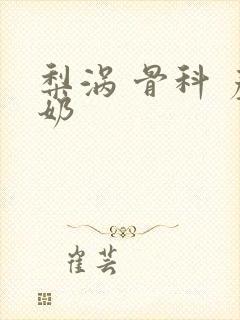 梨涡 骨科
奶
崔芸